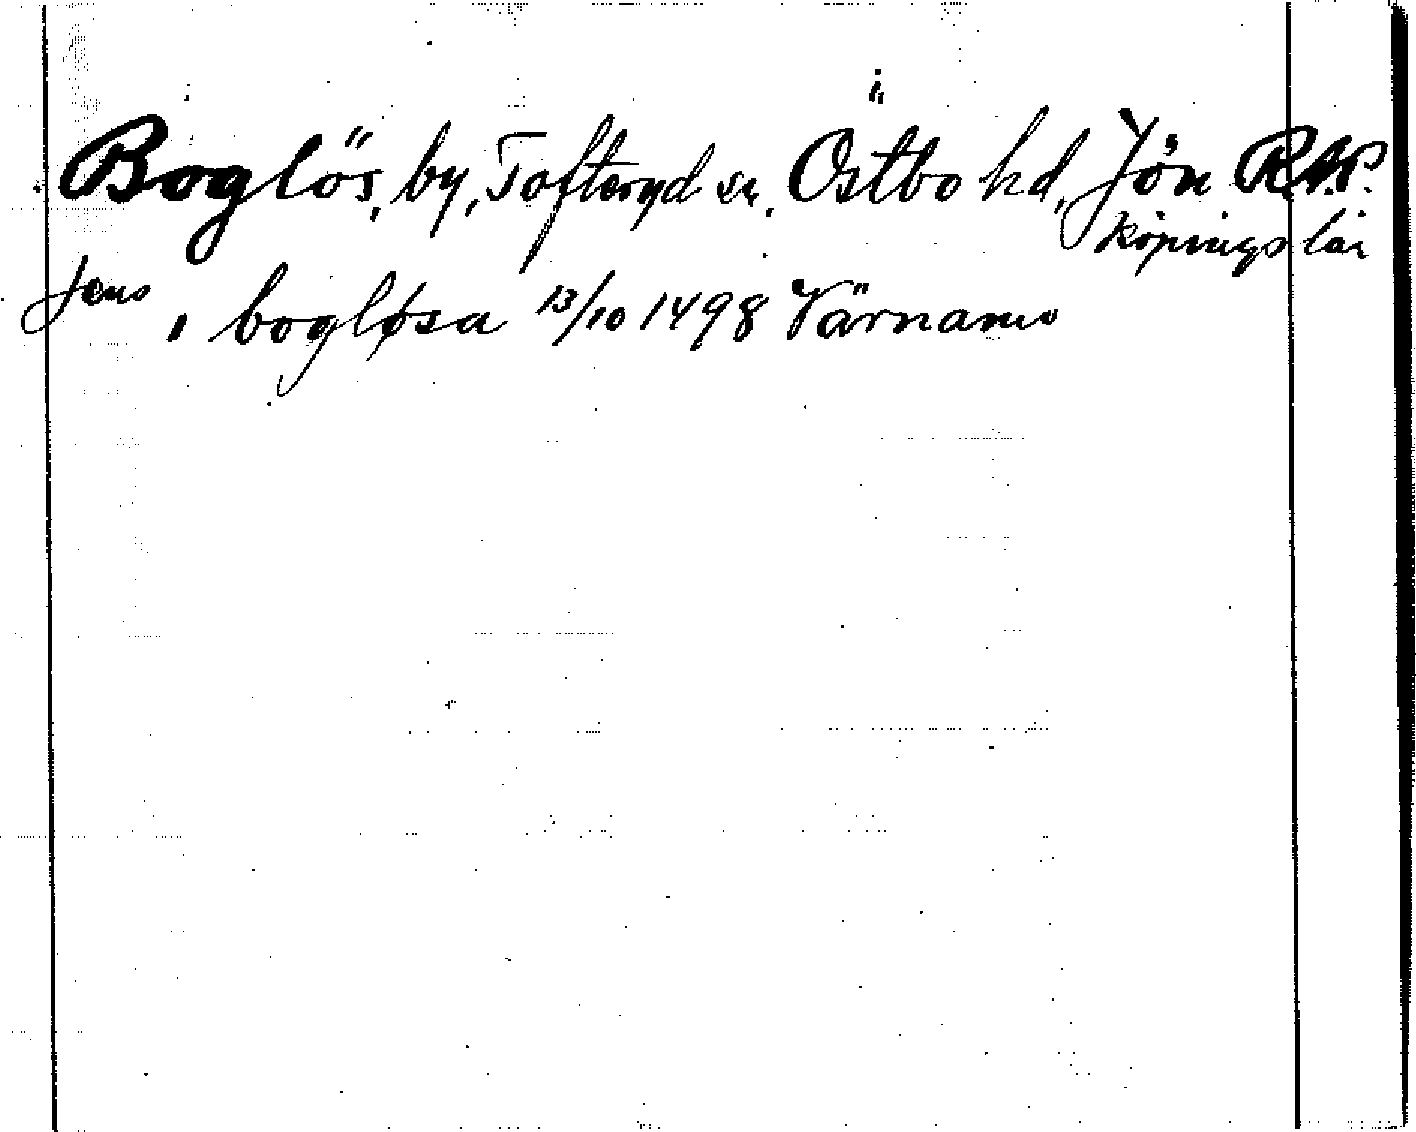 Boglös, by, Tofteryd sn, Östbo hd, Jön
köpings län
Jens i bogløsa 13/10 1498 Värnamo